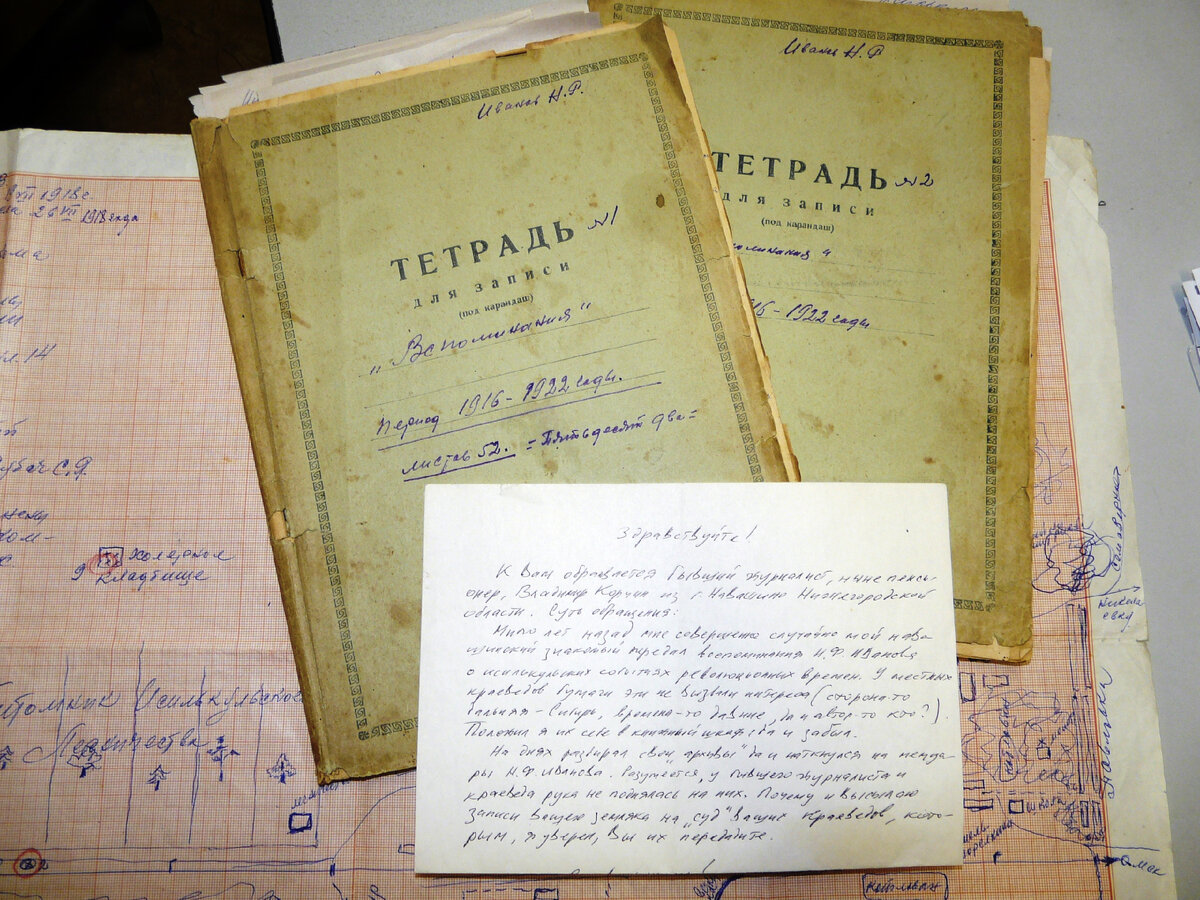 Иванов Н.Ф.
ТЕТРАДЬ №1
для записи
(под карандаш)
„Воспоминания"
Период 1916-1922 годы.
листов 52. =Пятьдесят два=
Иванов Н.Ф
ТЕТРАДЬ №2
для записи
(под карандаш)
1922 годы
1918 года
9 Холерное
кладбище
Питомник Исилькульского
Лесничества
Здравствуйте!
К Вам обращается бывший журналист, ныне пенси-
онер, Владимир Корчин из г. Навашино Нижегородской
области. Суть обращения:
Много лет назад мне совершенно случайно мой нава-
шинский знакомый передал воспоминания Н.Ф. Иванова
о исилькульских событиях революционных времен. У местных
краеведов бумаги эти не вызвали интереса (сторона-то
дальняя - Сибирь, времена-то давние, да и автор-то кто?).
Положил я их себе в книжный шкаф да и забыл.
На днях разбирал свои „архивы" да и наткнулся на тетра-
ды Н.Ф. Иванова. Разумеется, у бывшего журналиста и
краеведа рука не поднялась на них. Почему и высылаю
записи вашего земляка на „суд" ваших краеведов, кото-
рым, я уверен, Вы их передадите.
Никола
евка
школа
Омск
Котлован